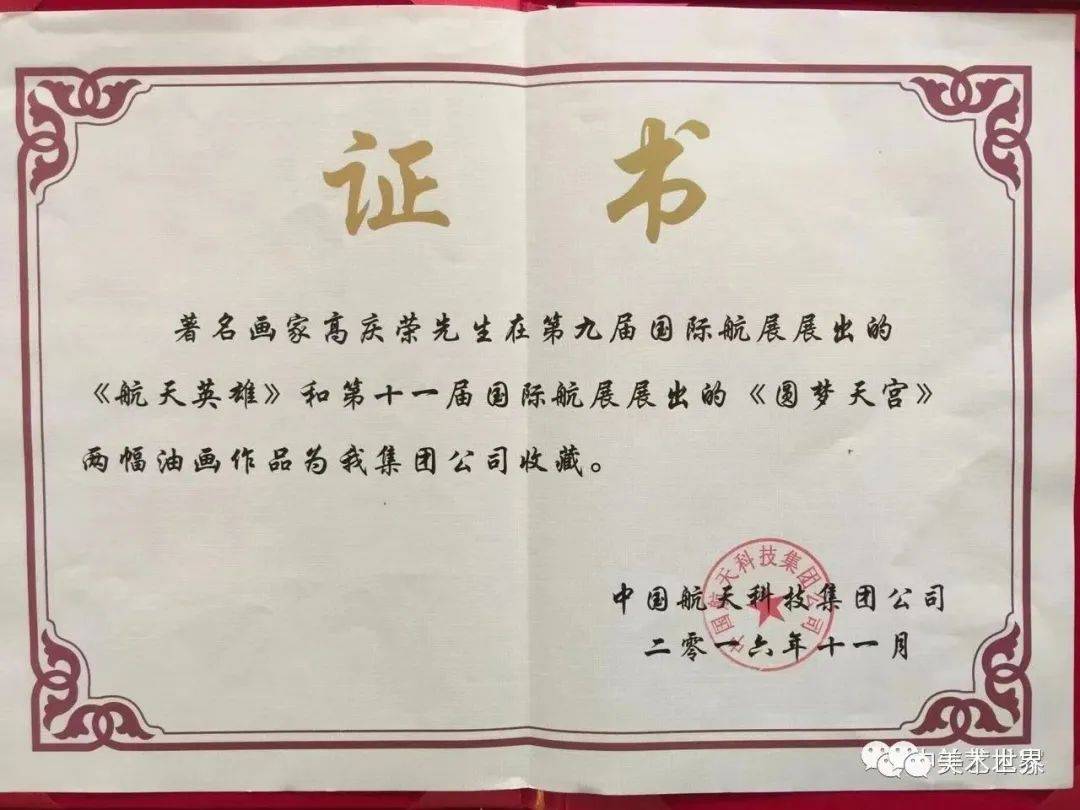 证书
著名画家高庆荣先生在第九届国际航展展出的
《航天英雄》和第十一届国际航展展出的《圆梦天宫》
两幅油画作品为我集团公司收藏。
中国航天科技集团公司
中国航天科技集团公司
二零一六年十一月
中美艺世界